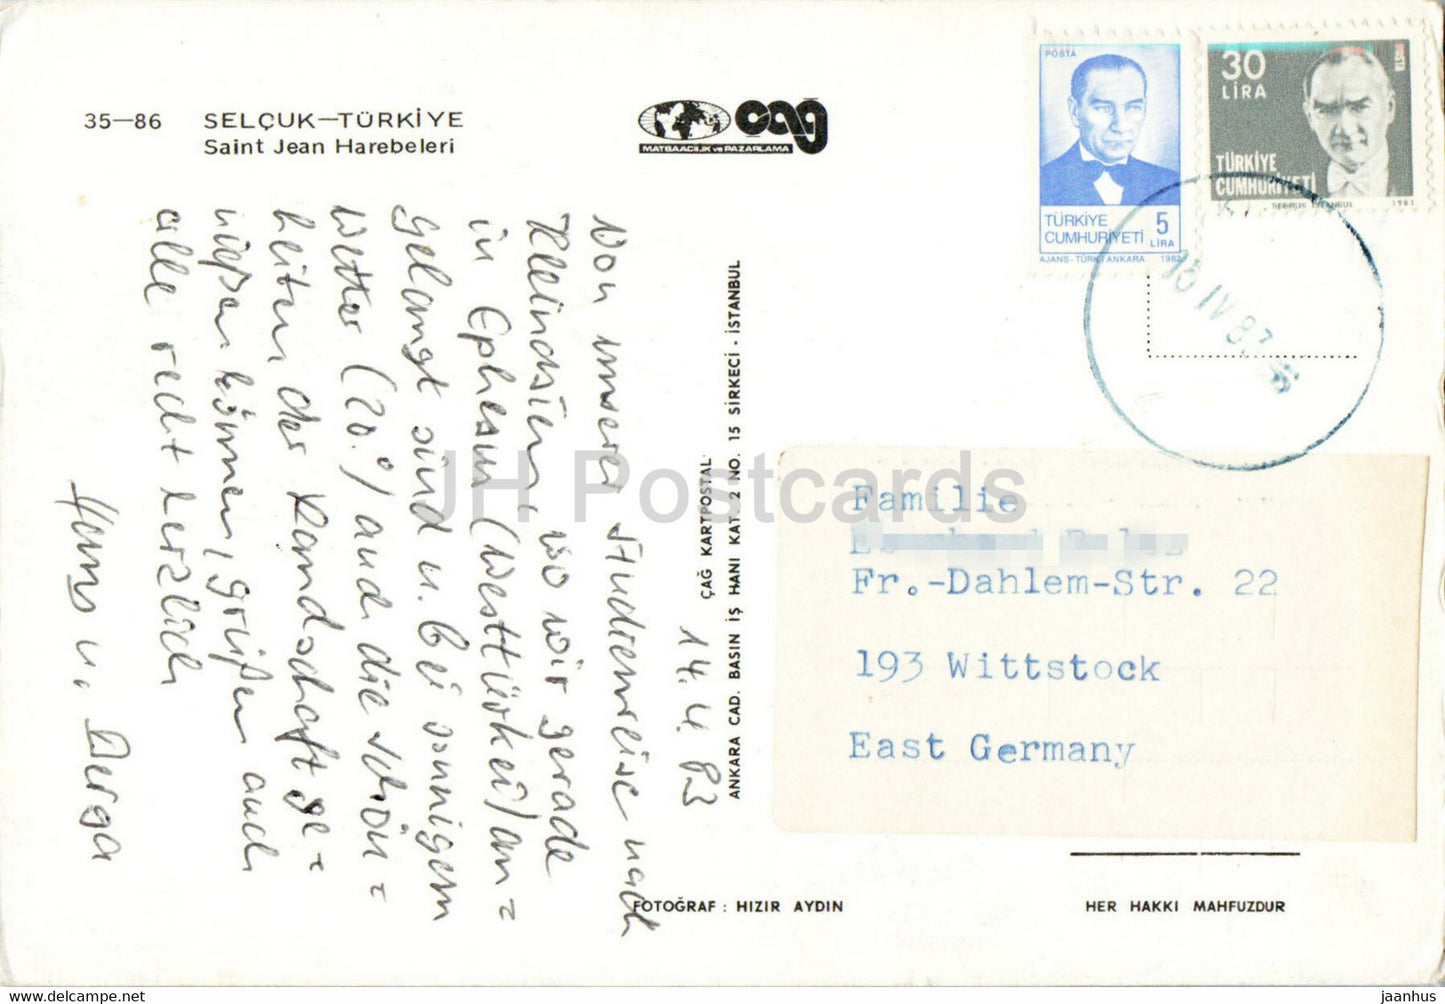 35—86 SELÇUK—TÜRKİYE
Saint Jean Harebeleri
MATBAACILIK ve PAZARLAMA
çağ
POSTA
TÜRKİYE 5
CUMHURİYETİ LİRA
AJANS-TÜRK/ANKARA 1982
30
LİRA
POSTA
TÜRKİYE
CUMHURİYETİ
İSTANBUL 1981
15 IV 83
14.4.83
Von unserer Studienreise nach
Kleinasien, wo wir gerade
in Ephesus (Westtürkei) an=
gelangt sind u. bei sonnigem
Wetter (20°) auch die Schön=
heiten der Landschaft ge=
nießen können, grüßen auch
alle recht herzlich
Hans u.
ÇAĞ KARTPOSTAL
ANKARA CAD. BASIN İŞ HANI KAT. 2 NO. 15 SİRKECİ - İSTANBUL
JH Postcards
Familie
Fr.-Dahlem-Str. 22
193 Wittstock
East Germany
FOTOĞRAF : HIZIR AYDIN
HER HAKKI MAHFUZDUR
jaanhus